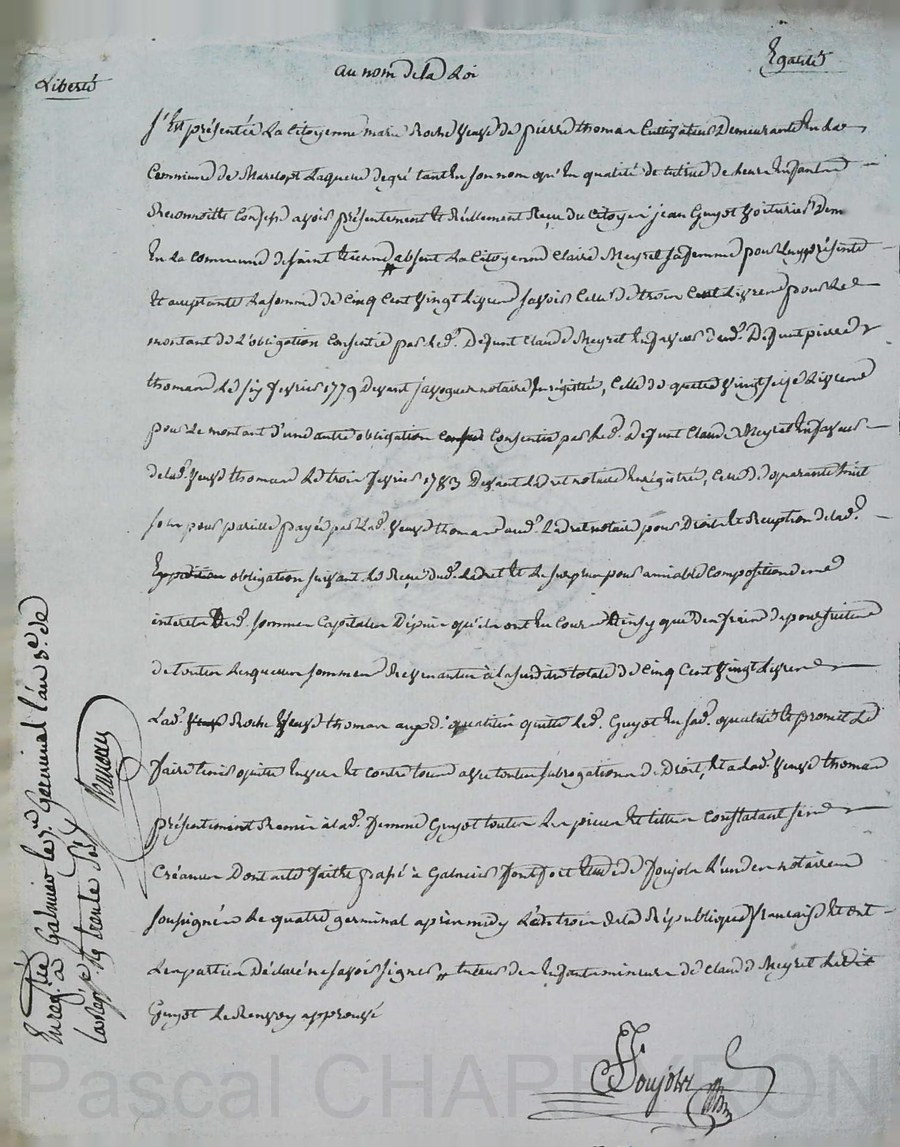 Liberté
au nom de la Loi
Egalité
S'Est présentée La Citoyenne marie Roche veuve de pierre thomas Cultivateur Demeurante En La
Commune de Marclopt Laquelle de gré tant En son nom qu'En qualité de tutrice de leurs Enfants
Reconnoitt Confesse avoir présentement et Réellement Reçu du Citoyen jean Guyot Voiturier Dem
En La Commune de saint Etienne absent La Citoyenne Claire Meyret sa femme pour luy présente
Et acceptante La somme de Cinq Cent Vingt Livres savoir Celle de trois Cent Livres pour Le
montant de L'obligation Consentie par Led. Defunt Claude Meyret En faveur dud. Defunt pierre
thomas Le six fevrier 1779 Devant notaire Enregistrée, Celle de quatre Vingt seize Livres
pour Le montant d'une autre obligation Consentie par Led. Defunt Claude Meyret En faveur
de lad. Veuve thomas Le trois fevrier 1783 Devant Ladret notaire Enregistrée, Celle de quarante huit
sous pour pareille payée par Lad. Veuve thomas aud. Ladret notaire pour Droit de Reception de lad.
Expedition obligation suivant Le Reçu dud. Ladret Et Le surplus pour amiable Composition des
interets desd. sommes Capitales Depuis qu'ils ont En Cours Ainsy que des frais de poursuittes
de toutes Lesquelles sommes Revenantes à La susditte totale de Cinq Cent Vingt Livres
Lad. Roche Veuve thomas auxd. qualités quitte Led. Guyot En sad. qualité Et promet Le
faire tenir quitte Envers Et contre tous avec toutes subrogations de Droit, Et a Lad. Veuve thomas
présentement Remis à lad. femme Guyot toutes Les pieces Et titres Constatant ses
Créances Dont acte faitte passé à Galmier Fontfort Etude de Poujols L'un des notaires
soussignés Le quatre germinal après midy L'an trois de la République française Et ont
Les parties Déclaré ne savoir signer tuteur des Enfants mineurs de Claude Meyret Ledit
Guyot Le Renvoy approuvé
Poujols
Enregistré à Galmier le germinal l'an 3e. de
la Rep.